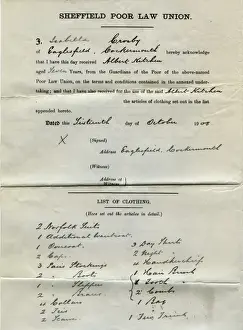 SHEFFIELD POOR LAW UNION.
3. Isabella Crosby
of Eaglesfield, Cockermouth hereby acknowledge
that I have this day received Albert Kitchen
aged Seven Years, from the Guardians of the Poor of the above-named
Poor Law Union, on the terms and conditions contained in the annexed under-
taking; and that I have also received for the use of the said Albert Kitchen
the articles of clothing set out in the list
appended hereto.
Dated this day of October
X (Signed)
Address Eaglesfield, Cockermouth
(Witness)
Address of Witness
LIST OF CLOTHING.
(Here set out the articles in detail.)
2 Norfolk Suits
1 Additional
1 Overcoat
2 Caps
3 Pairs Stockings
2 " Boots
1 " Slippers
2 " Braces
4 Collars
2 Ties
3 Day Shirts
2 Night "
4 Handkerchiefs
1 Hair Brush
1 Tooth "
2 Combs
1 Bag